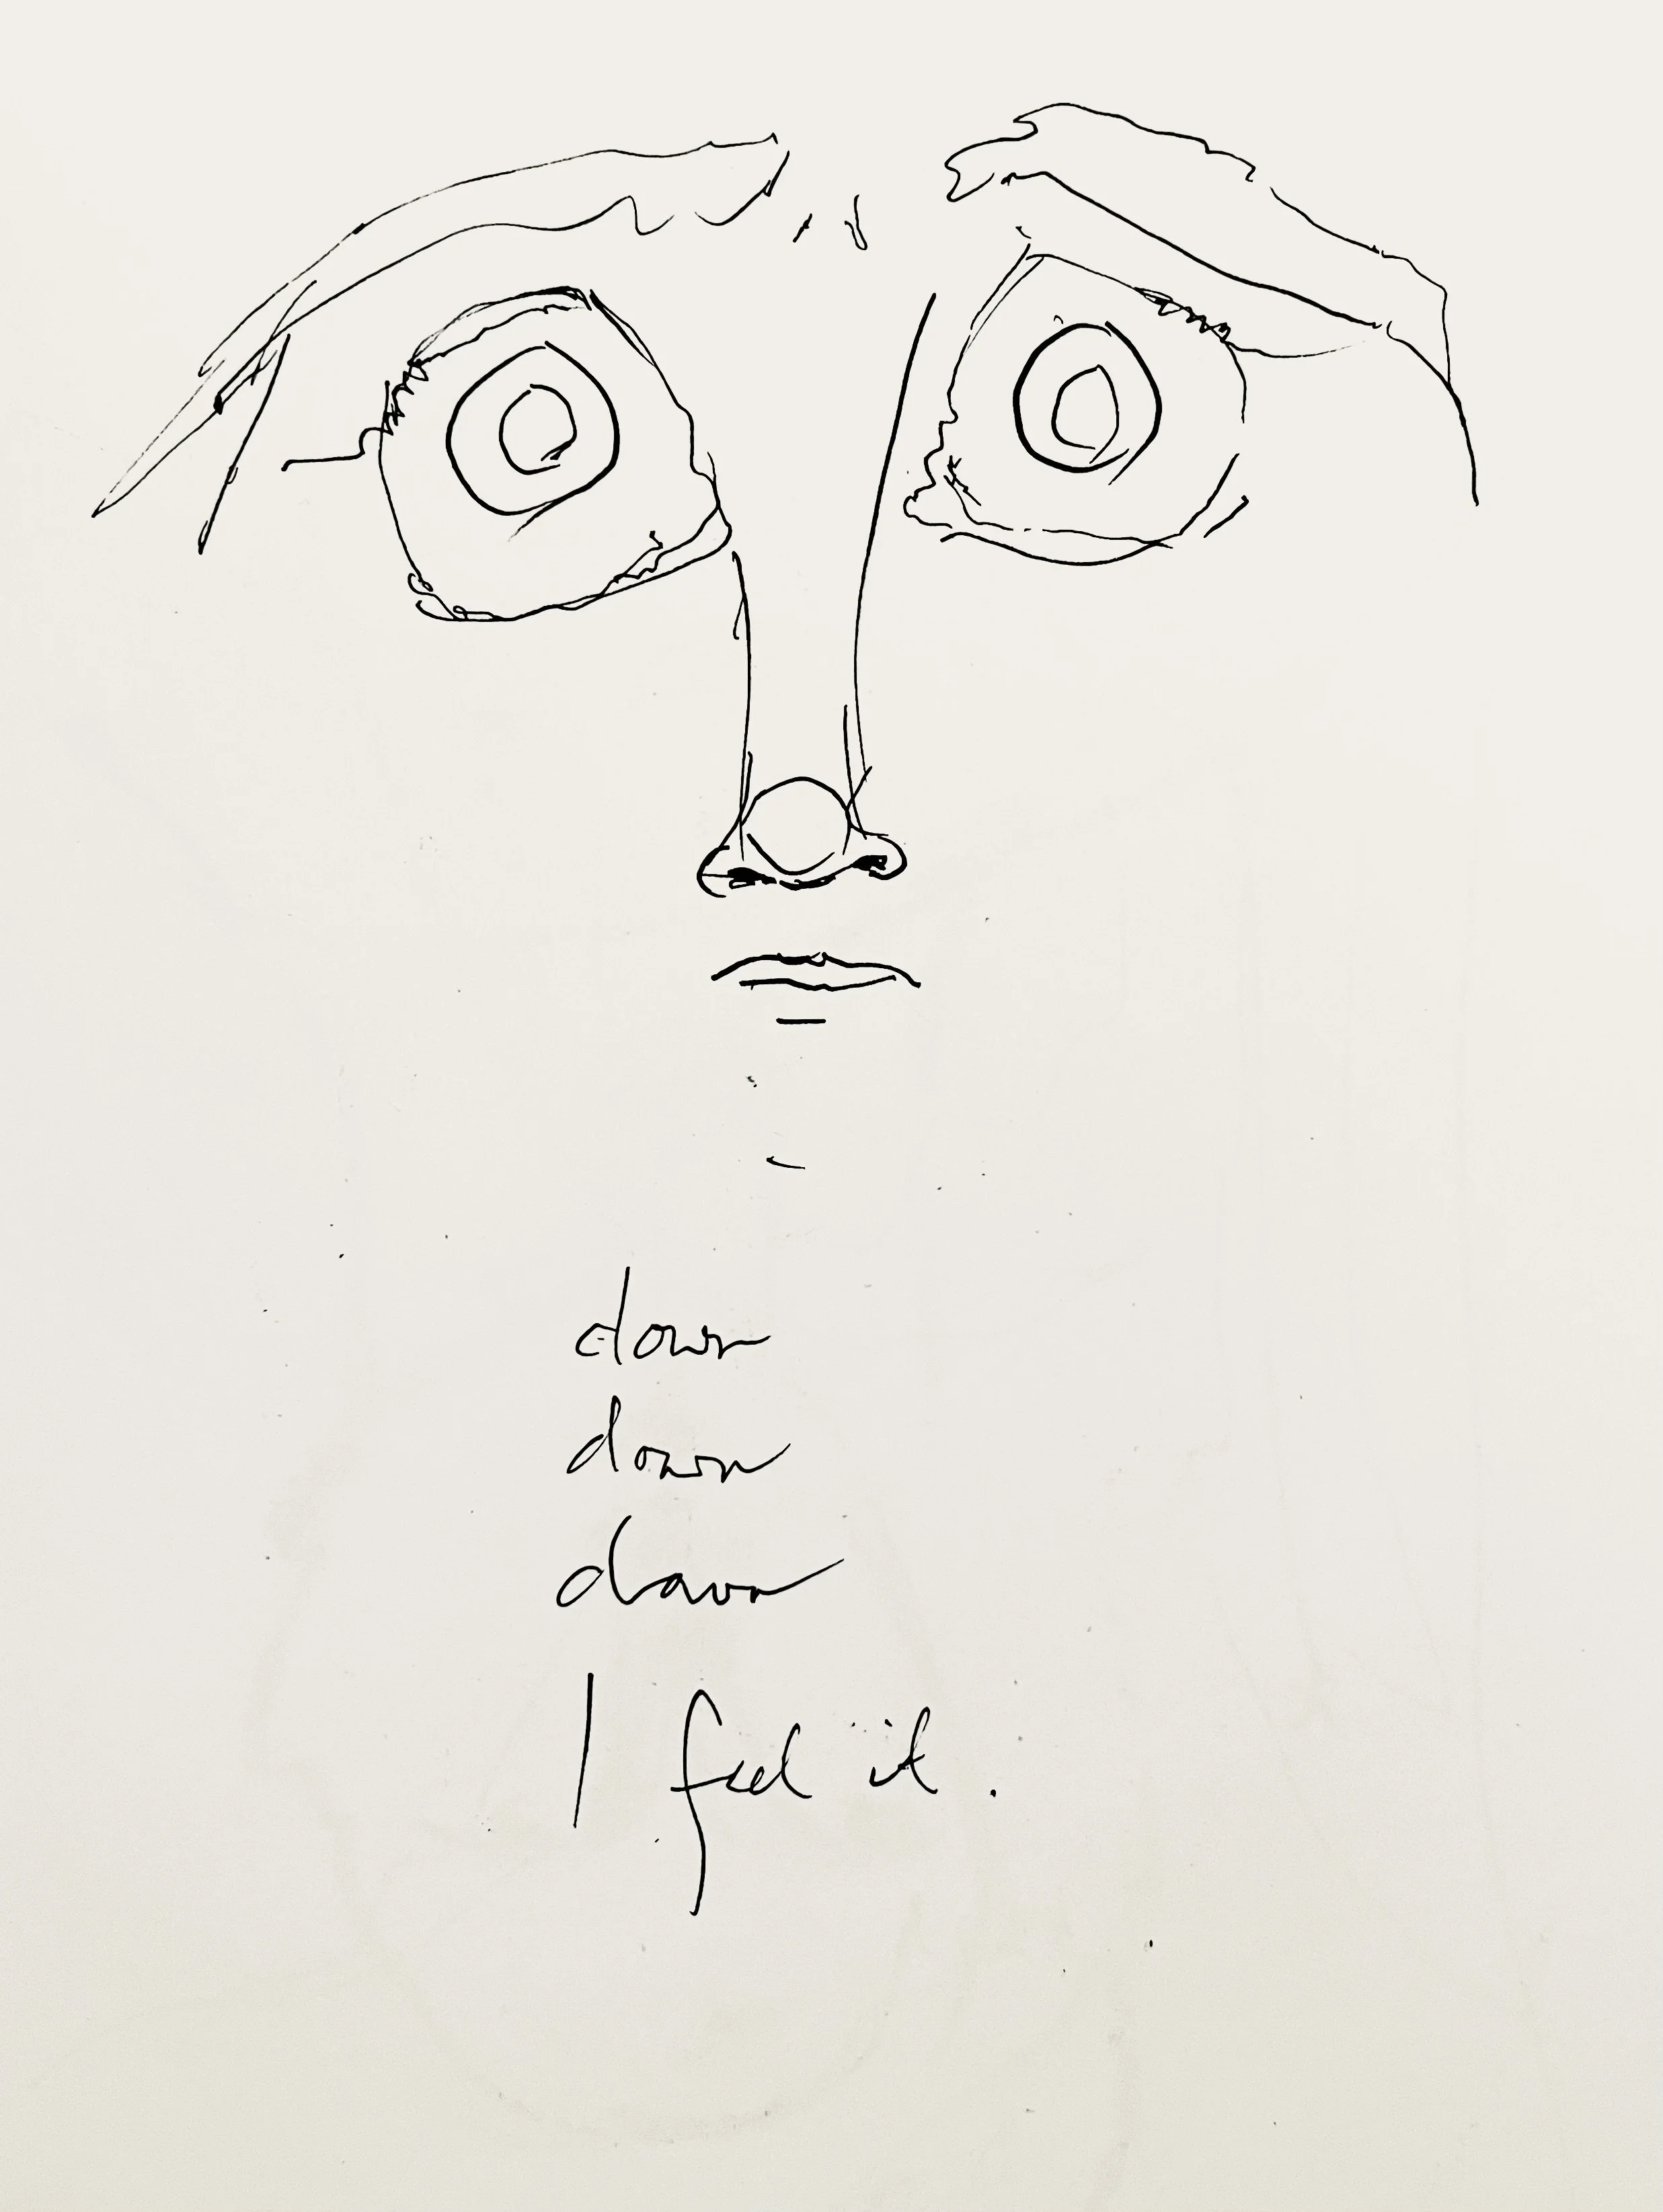 down
down
down
I feel it.